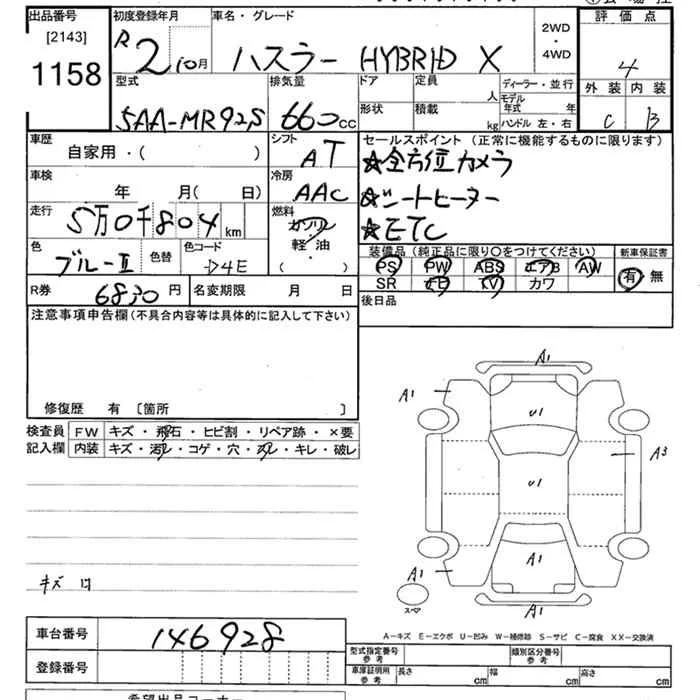 出品番号 初度登録年月 車名・グレード 2WD・4WD 評価点
[2143]
1158
R2 10月 ハスラー HYBRID X 4
型式 排気量 ドア 定員 人 ディーラー・並行 外装 内装
5AA-MR92S 660cc 形状 積載 kg モデル年式 年 ハンドル 左・右 C B
車歴 自家用・( ) シフト AT
セールスポイント (正常に機能するものに限ります)
☆全方位カメラ
☆シートヒーター
☆ETC
車検 年 月( 日) 冷房 AAC
走行 5万0千804km 燃料 ガソリン 軽・油 ( )
色 ブルーⅡ 色替 色コード D4E
装備品 (純正品に限り〇をつけてください) 新車保証書
PS PW ABS エアB AW 有 無
SR ナビ TV カワ
R券 6830円 名変期限 月 日 後日品
注意事項申告欄 (不具合内容等は具体的に記入して下さい)
修復歴 有 〔箇所 〕
検査員 FW キズ・飛石・ヒビ割・リペア跡・×要
記入欄 内装 キズ・汚レ・コゲ・穴・スレ・キレ・破レ
A1
A1 A1
U1
A3
U1
A1
A1 A1
スペア A1
A-キズ E-エクボ U-凹み W-補修跡 S-サビ C-腐食 XX-交換済
車台番号 146928
型式指定番号 参考 類別区分番号 参考
登録番号
車庫証明用 参考 長さ cm 幅 cm 高さ cm
希望出品コーナー